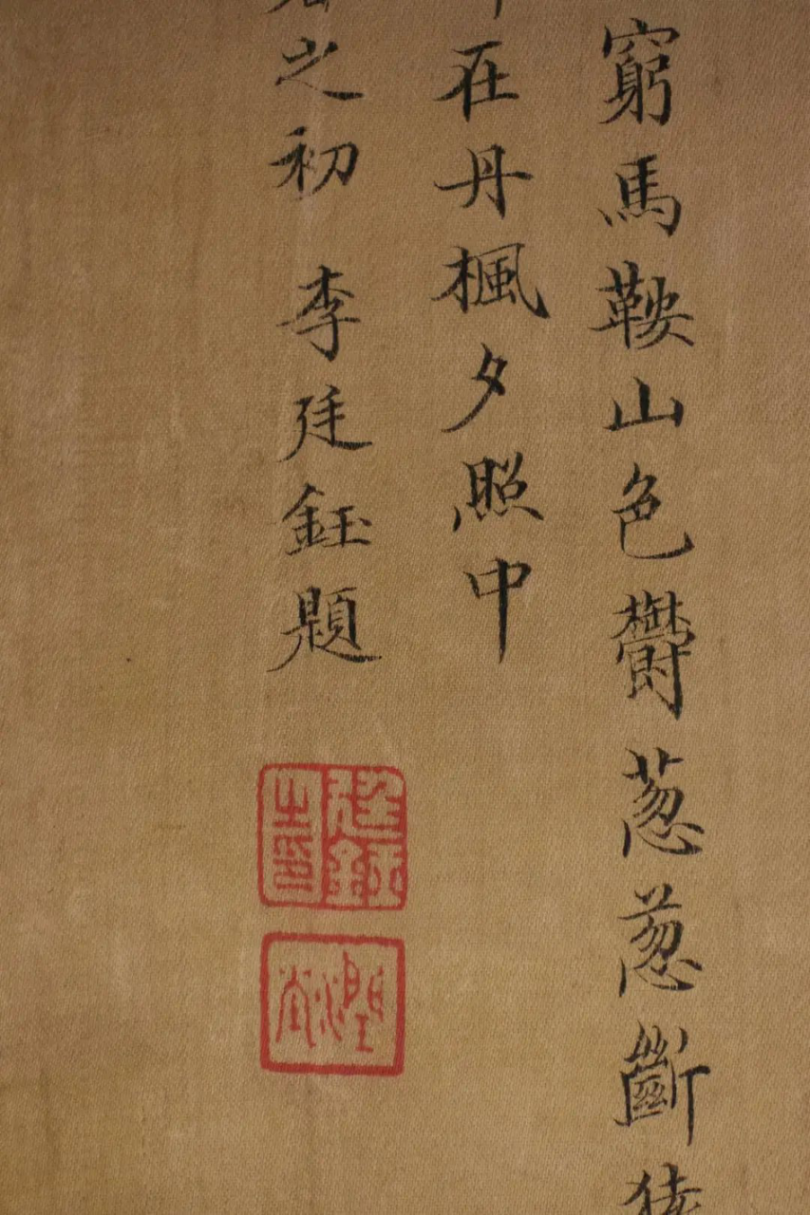 窮馬鞍山色欝葱葱斷猿
在丹楓夕照中
之初 李廷鈺題
廷鈺之印
潤